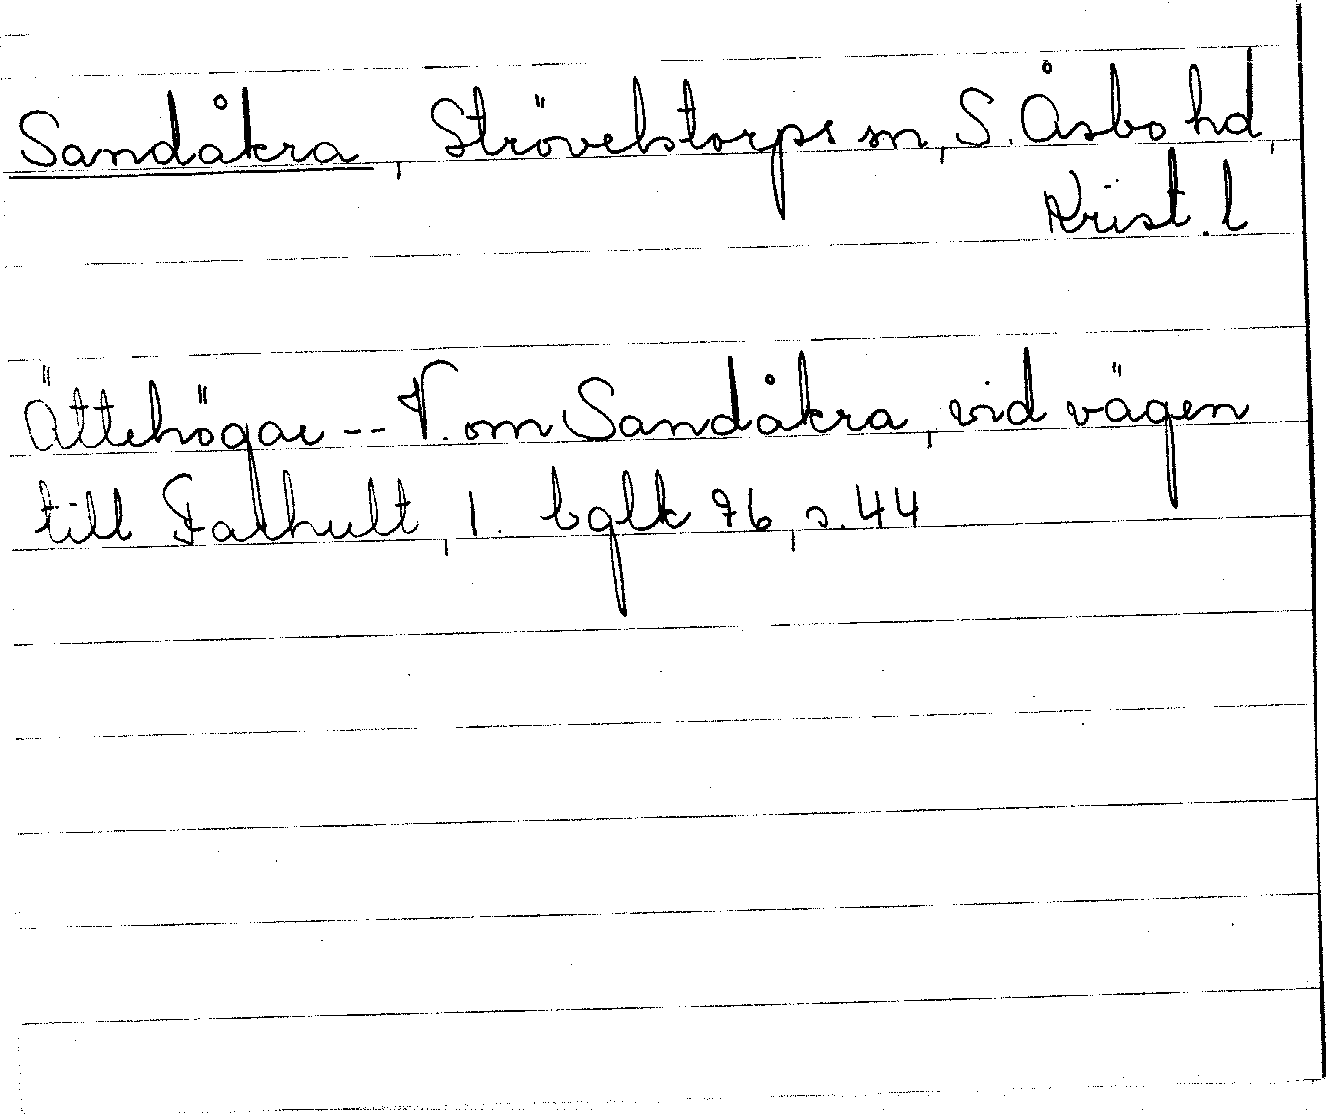 Sandåkra, Strövelstorps sn, S. Åsbo hd,
Krist. l
Ättehögar -- V. om Sandåkra, vid vägen
till Farhult, 1. bglk 76, s. 44